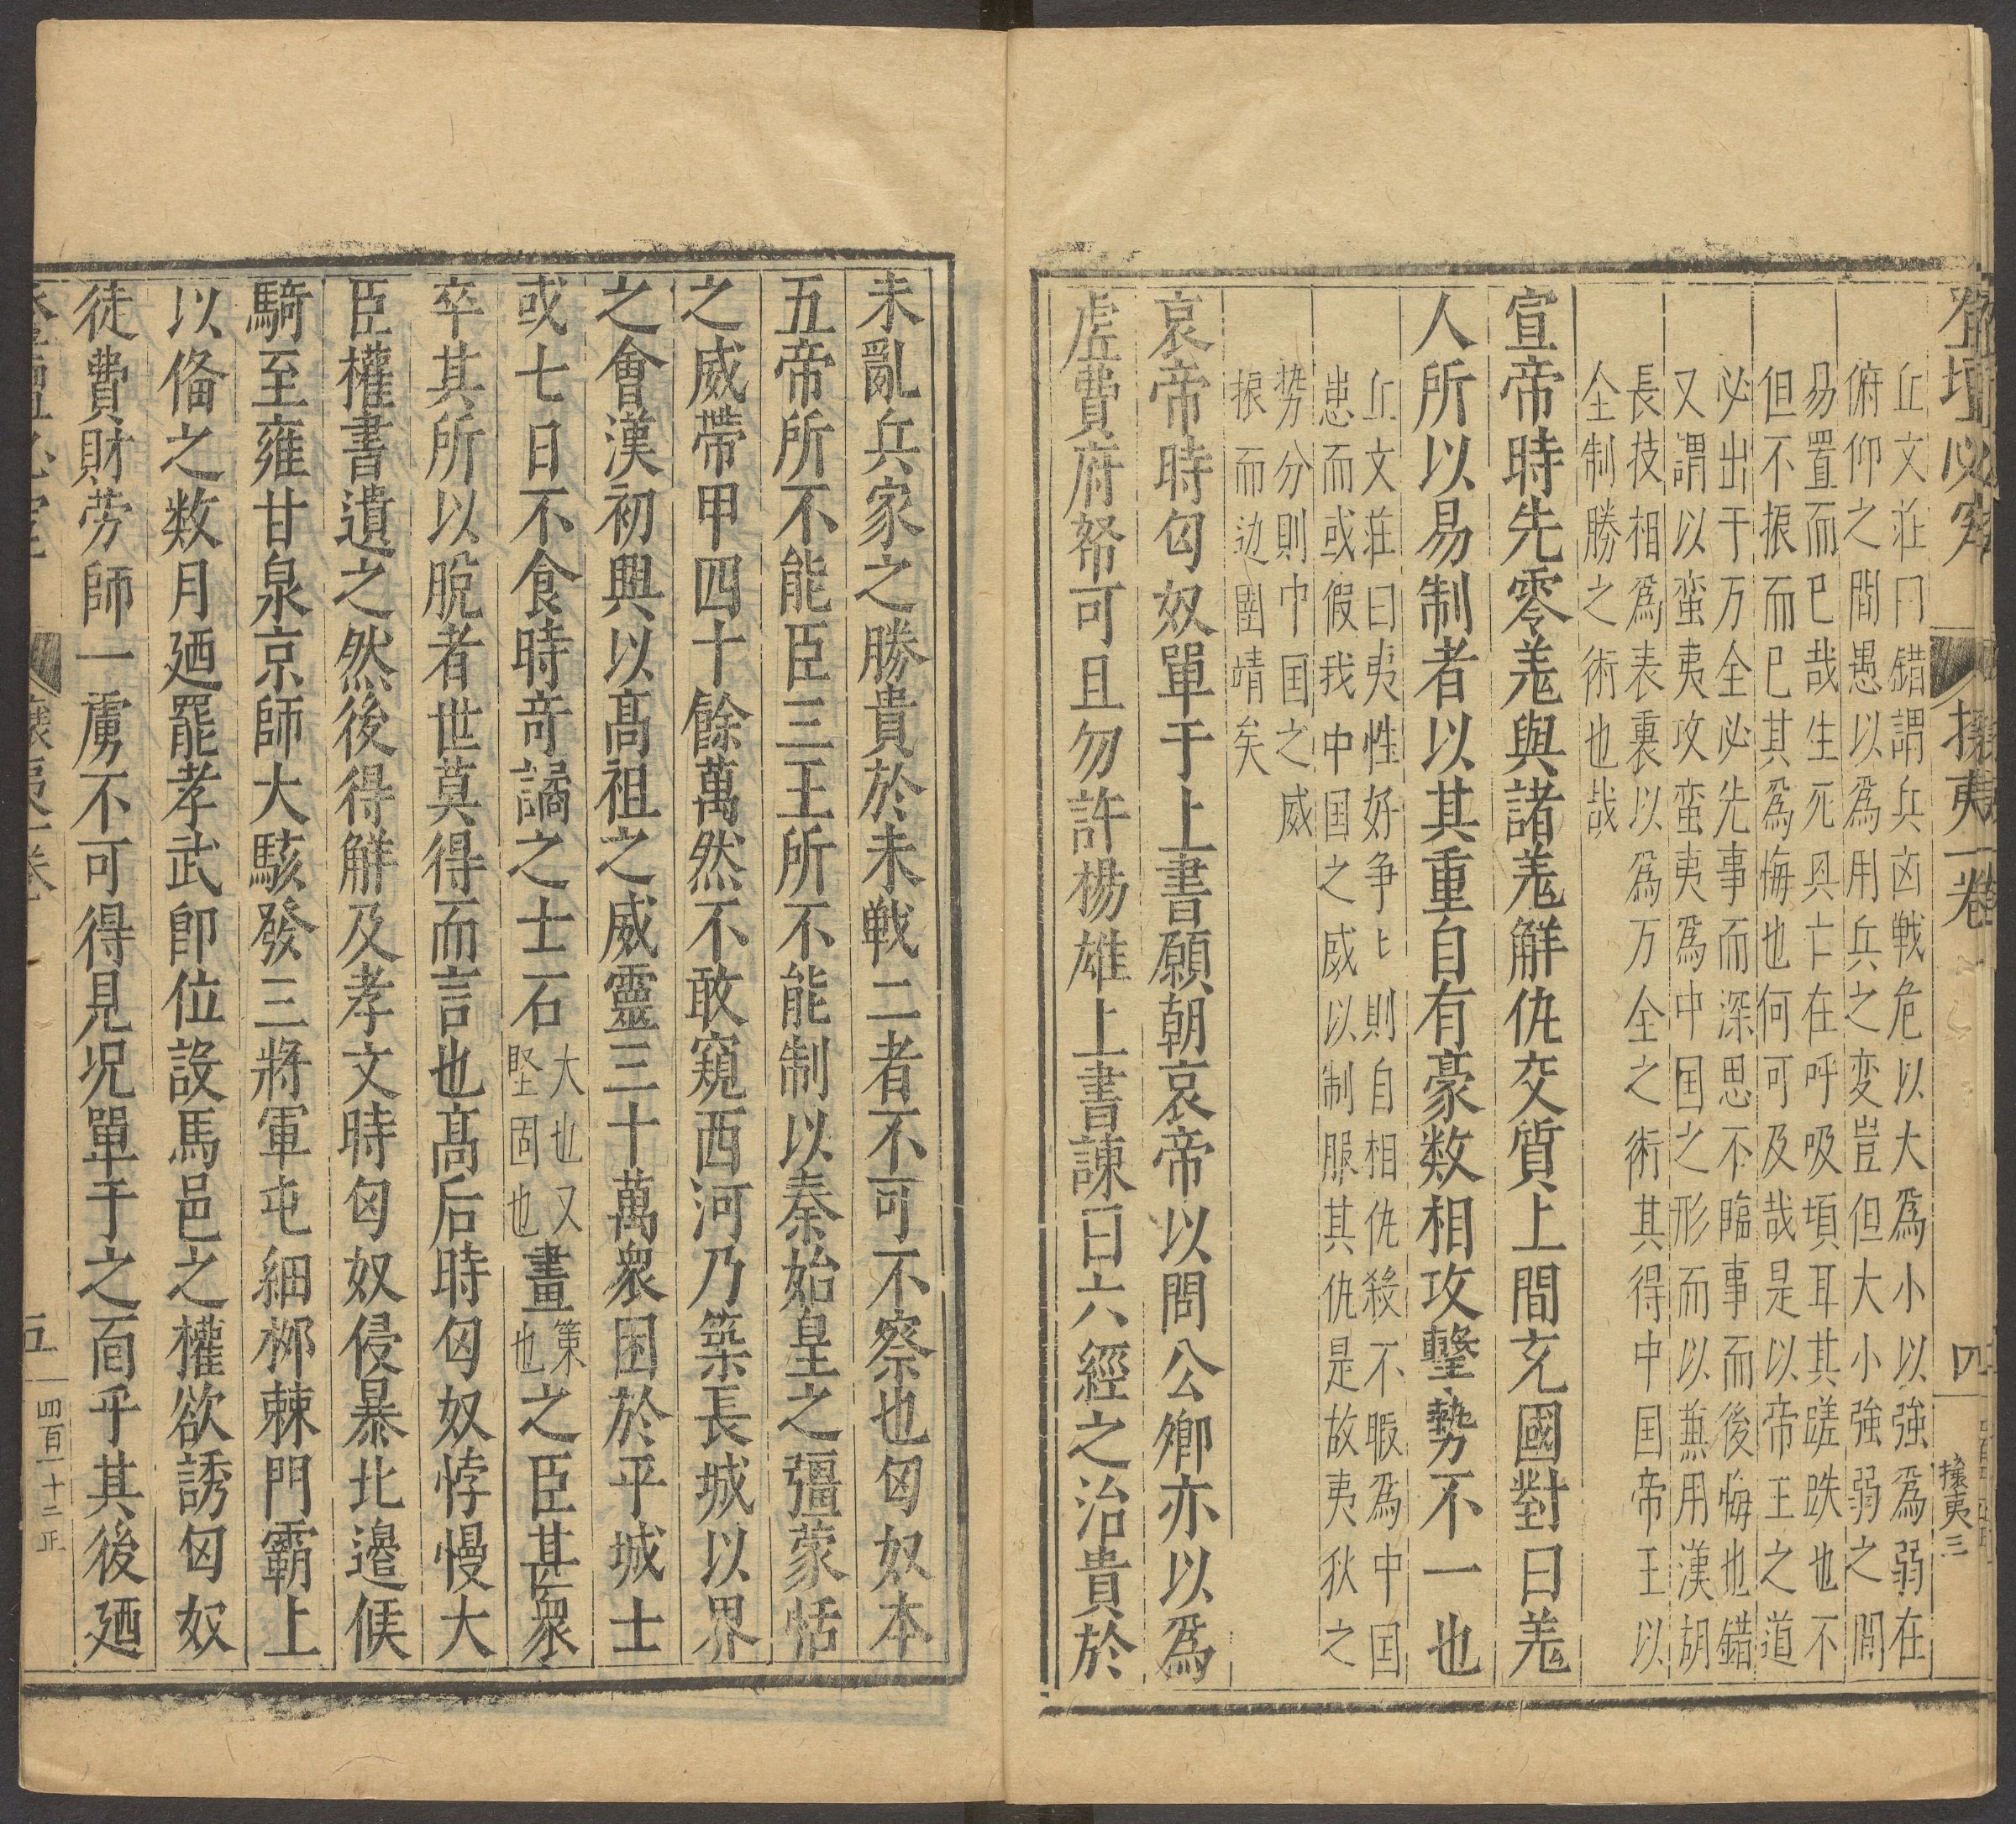 登壇必究
攘夷一卷
四
攘夷三
丘文莊曰錯謂兵凶戦危以大爲小以強爲弱在
俯仰之間愚以爲用兵之変豈但大小強弱之間
易置而已哉生死興亡在呼吸頃耳其蹉跌也不
但不振而已其爲悔也何可及哉是以帝王之道
必出于万全必先事而深思不臨事而後悔也錯
又謂以蛮夷攻蛮夷爲中国之形而以兼用漢胡
長技相爲表裏以爲万全之術其得中国帝王以
全制勝之術也哉
宣帝時先零羗與諸羗解仇交質上間充國對曰羗
人所以易制者以其重自有豪数相攻擊勢不一也
丘文莊曰夷性好争〻則自相仇殺不暇為中国
患而或假我中国之威以制服其仇是故夷狄之
势分則中国之威
振而边圉靖矣
哀帝時匈奴單于上書願朝哀帝以問公卿亦以爲
虗費府帑可且勿許楊雄上書諫曰六經之治貴於
未亂兵家之勝貴於未戦二者不可不察也匈奴本
五帝所不能臣三王所不能制以秦始皇之彊蒙恬
之威帶甲四十餘萬然不敢窺西河乃築長城以界
之會漢初興以髙祖之威靈三十萬衆困於平城士
或七日不食時竒譎之士石大也又堅固也畫策也之臣甚衆
卒其所以脫者世莫得而言也髙后時匈奴悖慢大
臣權書遺之然後得解及孝文時匈奴侵暴北邉候
騎至雍甘泉京師大駭發三將軍屯細桞棘門霸上
以俻之数月廼罷孝武卽位設馬邑之權欲誘匈奴
徒費財劳師一虜不可得見况單于之面乎其後廼
五
四百一十二正